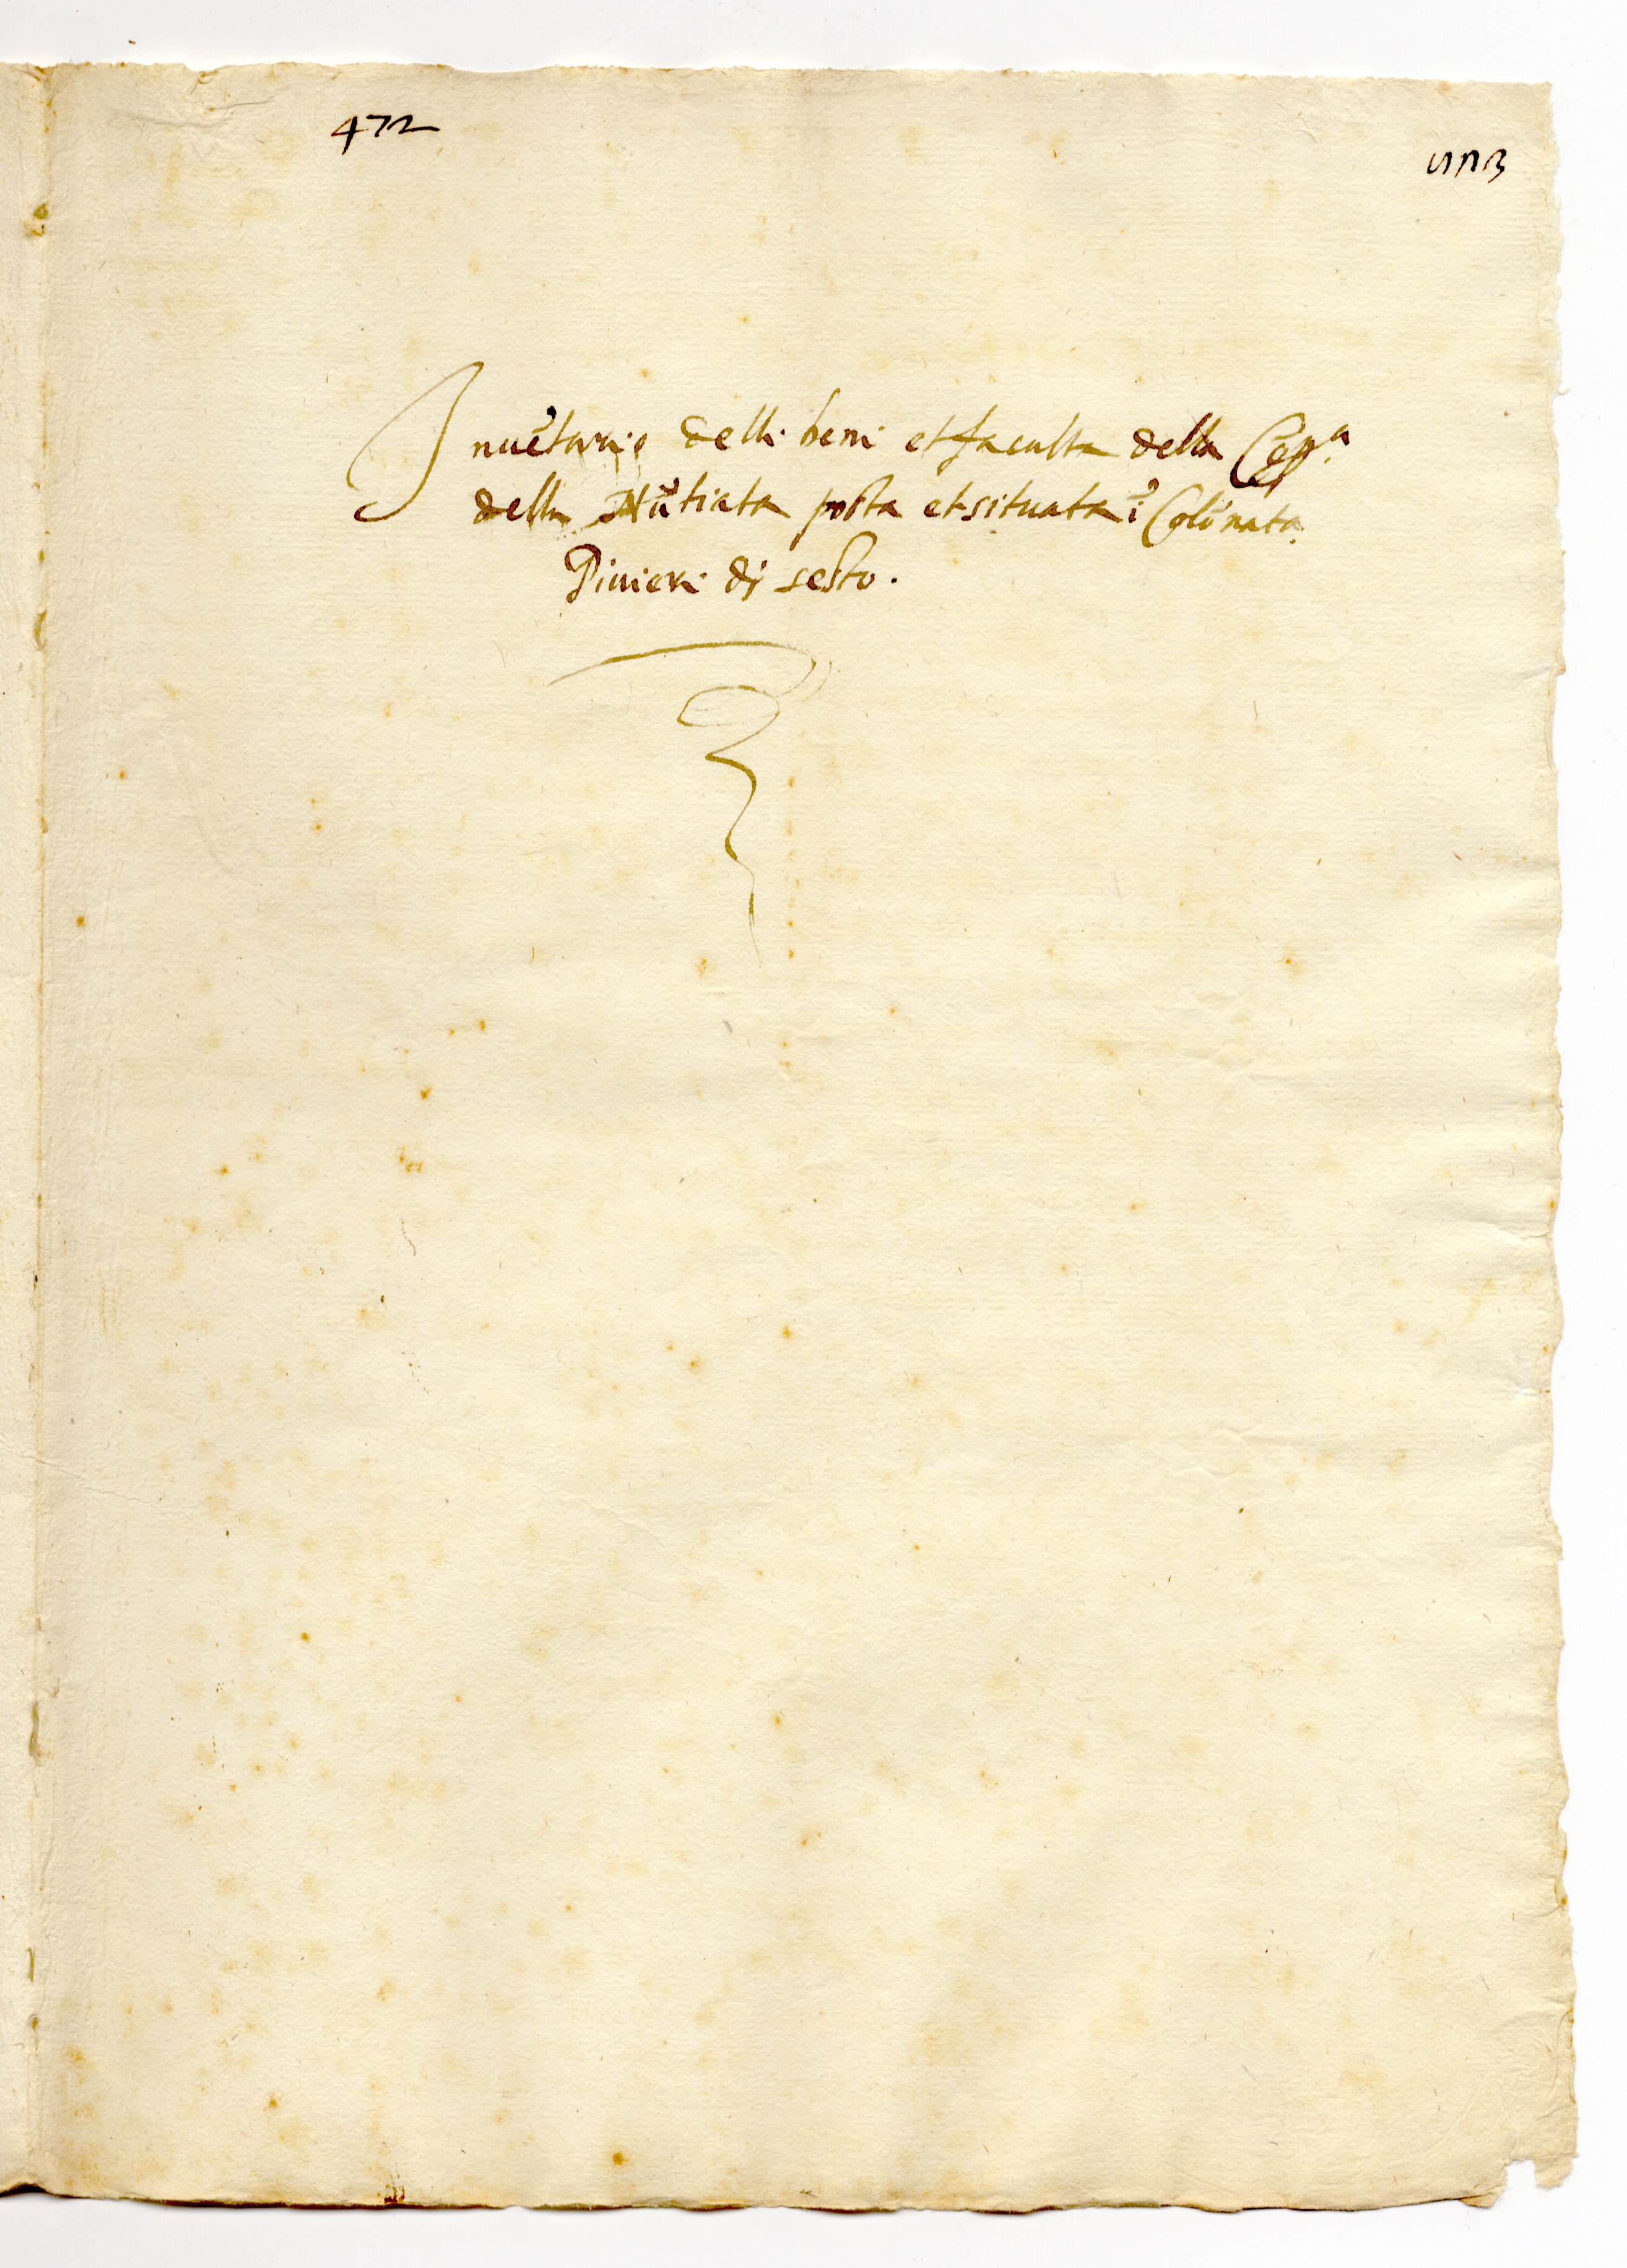 472
Inuẽtario delli beni et faculta della Cõpᵃ.
della Nũtiata posta et situata ĩ Colõnata
Piuieri di sesto.